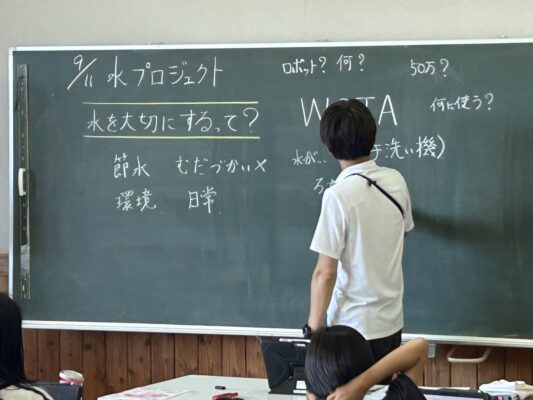 9/11 水プロジェクト
水を大切にするって?
節水 むだづかい×
環境 日常
ロボット? 何? 50万?
WOTA 何に使う?
水が… 手洗い機)
ろ